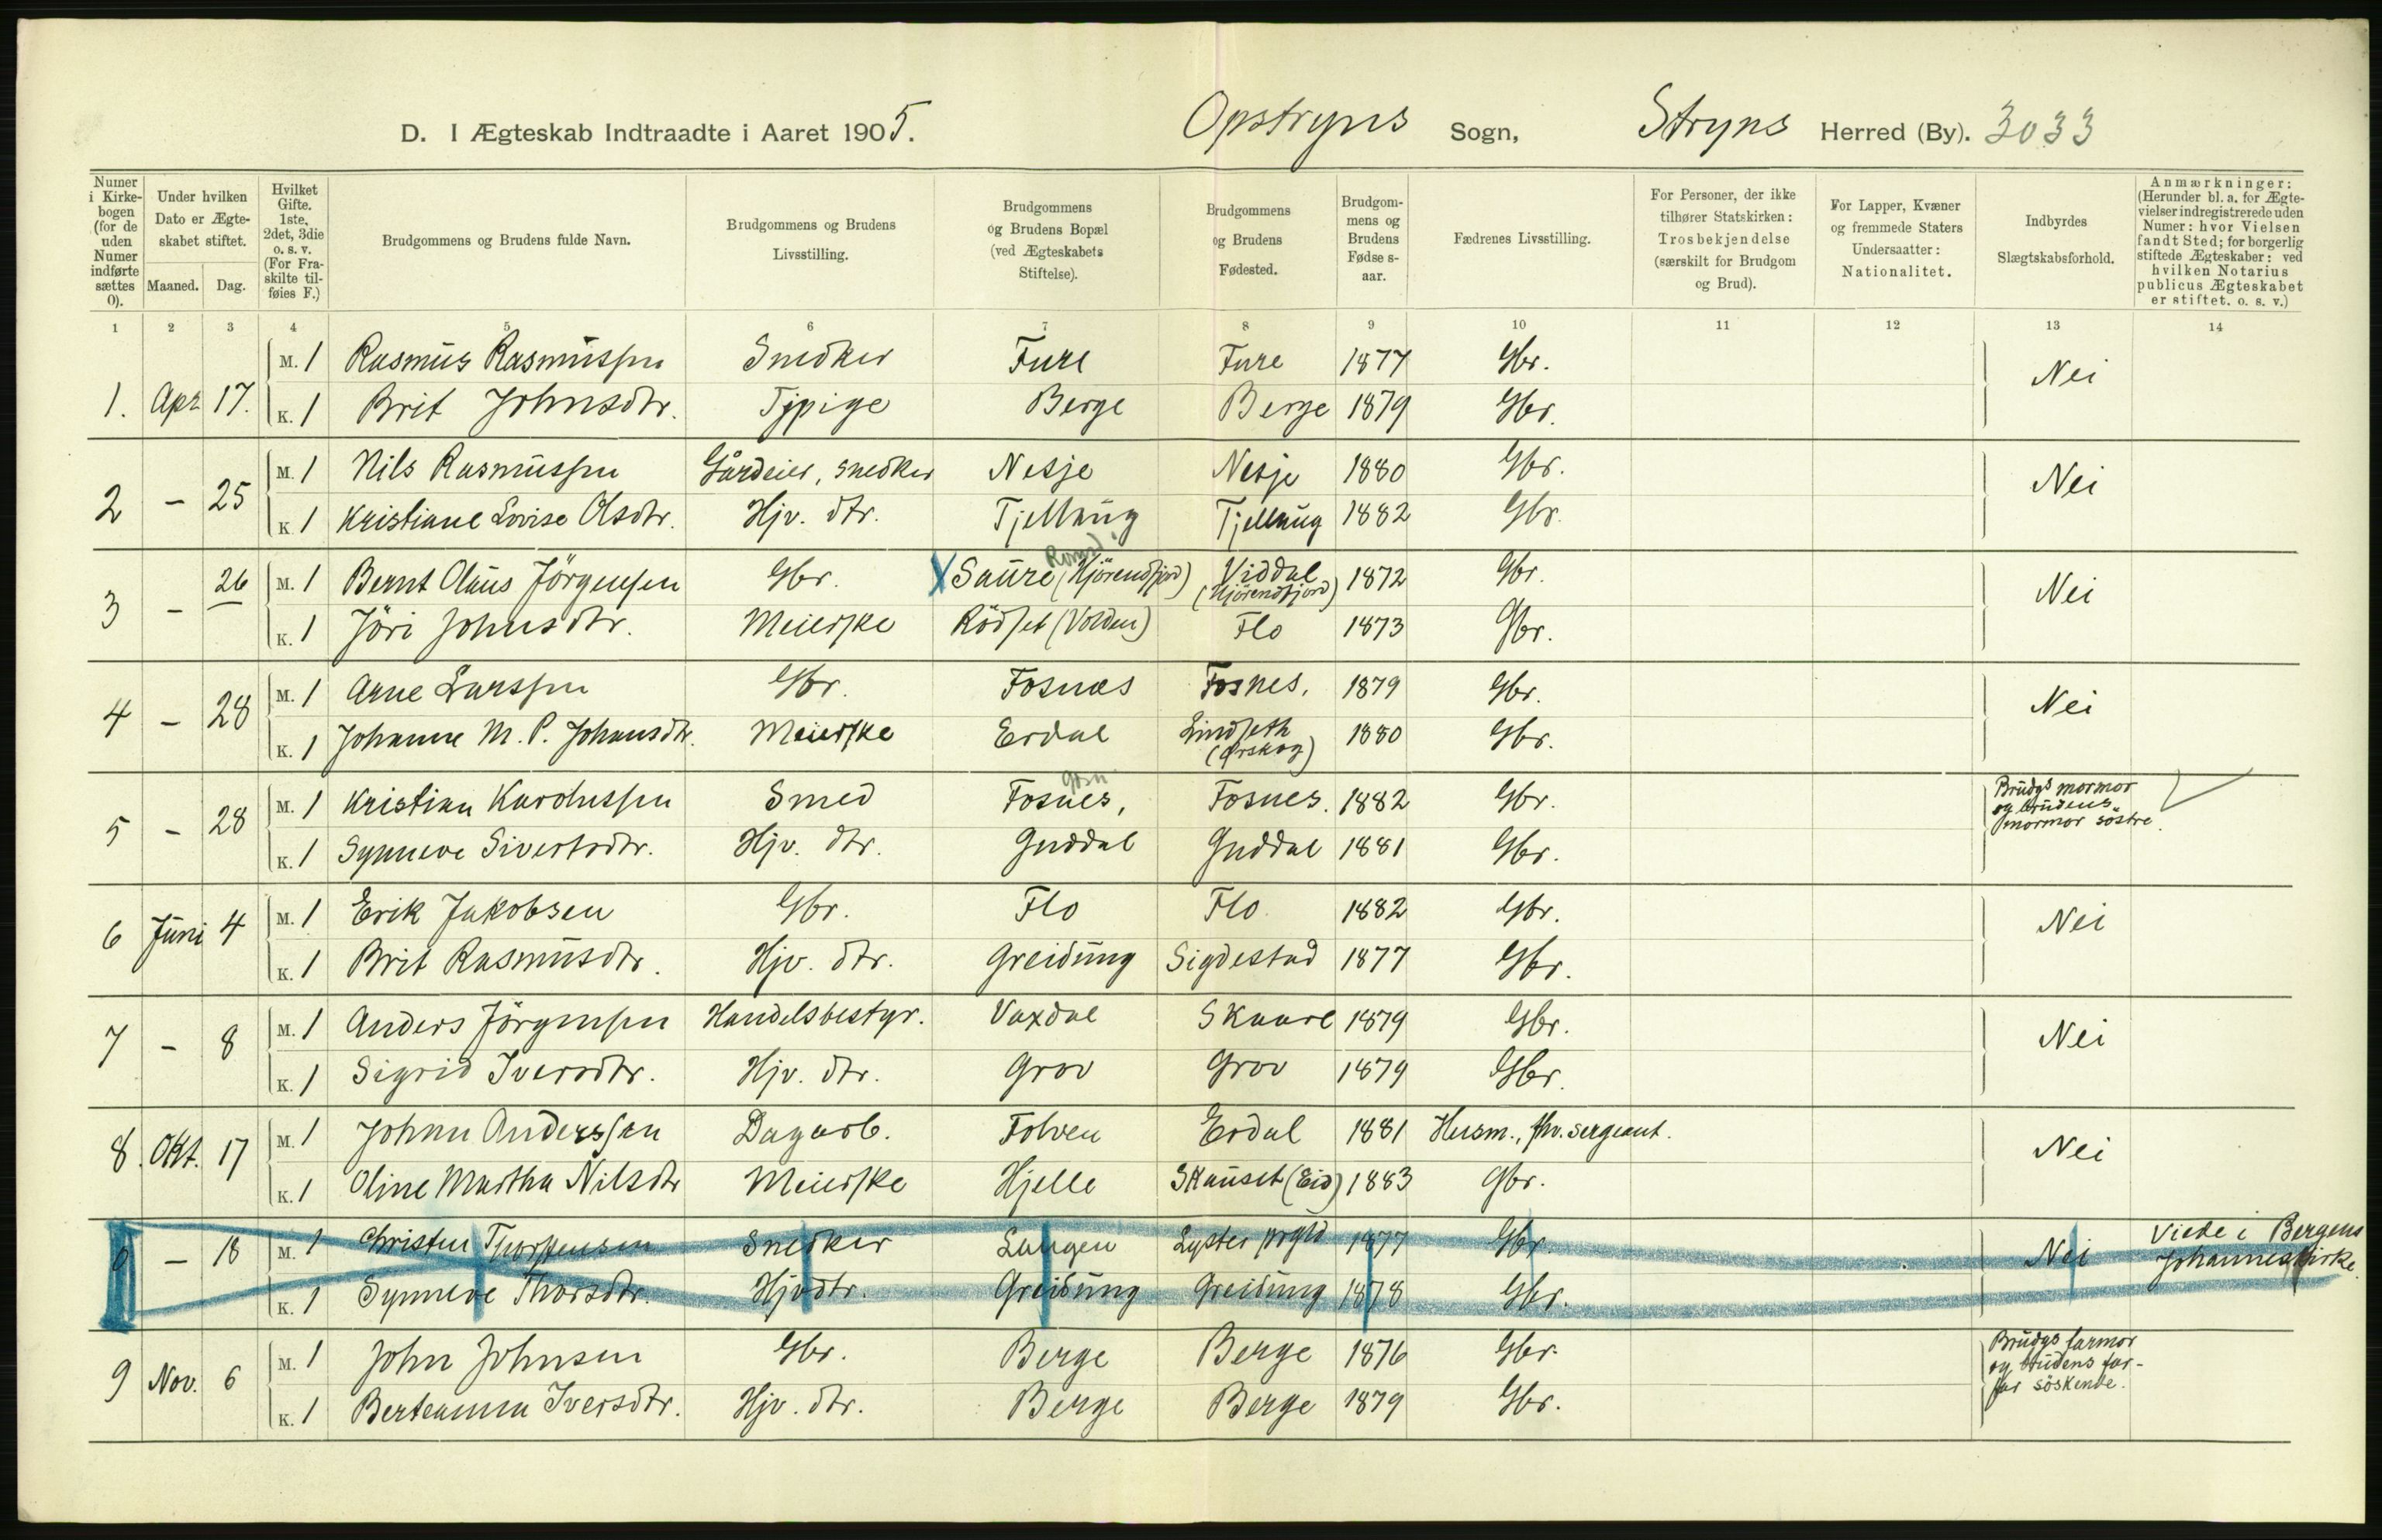 D. I Ægteskab Indtraadte i Aaret 1905. Opstryns Sogn, Stryns Herred (By). 3033
Numer i Kirkebogen (for de uden Numer indførte sættes 0).
Under hvilken Dato er Ægteskabet stiftet.
Maaned. Dag.
Hvilket Gifte. 1ste, 2det, 3die o. s. v. (For Fraskilte tilføies F.)
Brudgommens og Brudens fulde Navn.
Brudgommens og Brudens Livsstilling.
Brudgommens og Brudens Bopæl (ved Ægteskabets Stiftelse).
Brudgommens og Brudens Fødested.
Brudgommens og Brudens Fødselsaar.
Fædrenes Livsstilling.
For Personer, der ikke tilhører Statskirken: Trosbekjendelse (særskilt for Brudgom og Brud).
For Lapper, Kvæner og fremmede Staters Undersaatter: Nationalitet.
Indbyrdes Slægtskabsforhold.
Anmærkninger: (Herunder bl. a. for Ægtevielser indregistrerede uden Numer: hvor Vielsen fandt Sted; for borgerlig stiftede Ægteskaber: ved hvilken Notarius publicus Ægteskabet er stiftet. o. s. v.)
1 2 3 4 5 6 7 8 9 10 11 12 13 14
M. 1 Rasmus Rasmussen Snedker Fure Fure 1877 Gbr. Nei
1. Apr 17. K. 1 Brit Johnsdtr. Tjpige Berge Berge 1879 Gbr.
M. 1 Nils Rasmussen Gårdeier, snedker Nesje Nesje 1880 Gbr. Nei
2 - 25 K. 1 Kristiane Lovise Olsdtr. Hjv. dtr. Tjellaug Tjellaug 1882 Gbr.
26 M. 1 Bernt Olaus Jörgensen Gbr. X Saure (Hjörendfjord) Viddal (Hjörendfjord) 1872 Gbr. Nei
3 - K. 1 Jöri Johnsdtr. Meierske Rödset (Volden) Flo 1873 Gbr.
M. 1 Arne Larssen Gbr. Fosnæs Fosnes. 1879 Gbr. Nei
4 - 28 K. 1 Johanne M. P. Johansdtr. Meierske Erdal Lindseth (Ørskog) 1880 Gbr.
M. 1 Kristian Karolussen Smed Fosnes, Fosnes. 1882 Gbr. Brudgs mormor og brudens mormor söstre.
5 - 28 K. 1 Synneve Sivertsdtr. Hjv. dtr. Guddal Guddal 1881 Gbr.
M. 1 Erik Jakobsen Gbr. Flo Flo 1882 Gbr. Nei
6 Juni 4 K. 1 Brit Rasmusdtr. Hjv. dtr. Greidung Sigdestad 1877 Gbr.
M. 1 Anders Jörgensen Handelsbestyr. Vaxdal Skaare 1879 Gbr. Nei
7 - 8 K. 1 Sigrid Iversdtr. Hjv. dtr. Grov Grov 1879 Gbr.
M. 1 Johan Anderssen Dagarb. Folven Erdal 1881 Husm., fhv. sergeant. Nei
8. Okt. 17 K. 1 Oline Martha Nilsdtr Meierske Hjelle Skauset (Eid) 1883 Gbr.
0 - 18 M. 1 Christen Snedker Lyster prgld 1877 Gbr. Nei Viede i Bergens Johanneskirke.
K. 1 Synneve Thorsdtr. Hjvdtr. Greidung Greidung 1878 Gbr.
M. 1 John Johnsen Gbr. Berge Berge 1876 Gbr. Brudgs farmor og brudens farfar söskende.
9 Nov. 6 K. 1 Berteanna Iversdtr. Hjv. dtr. Berge Berge 1879 Gbr.